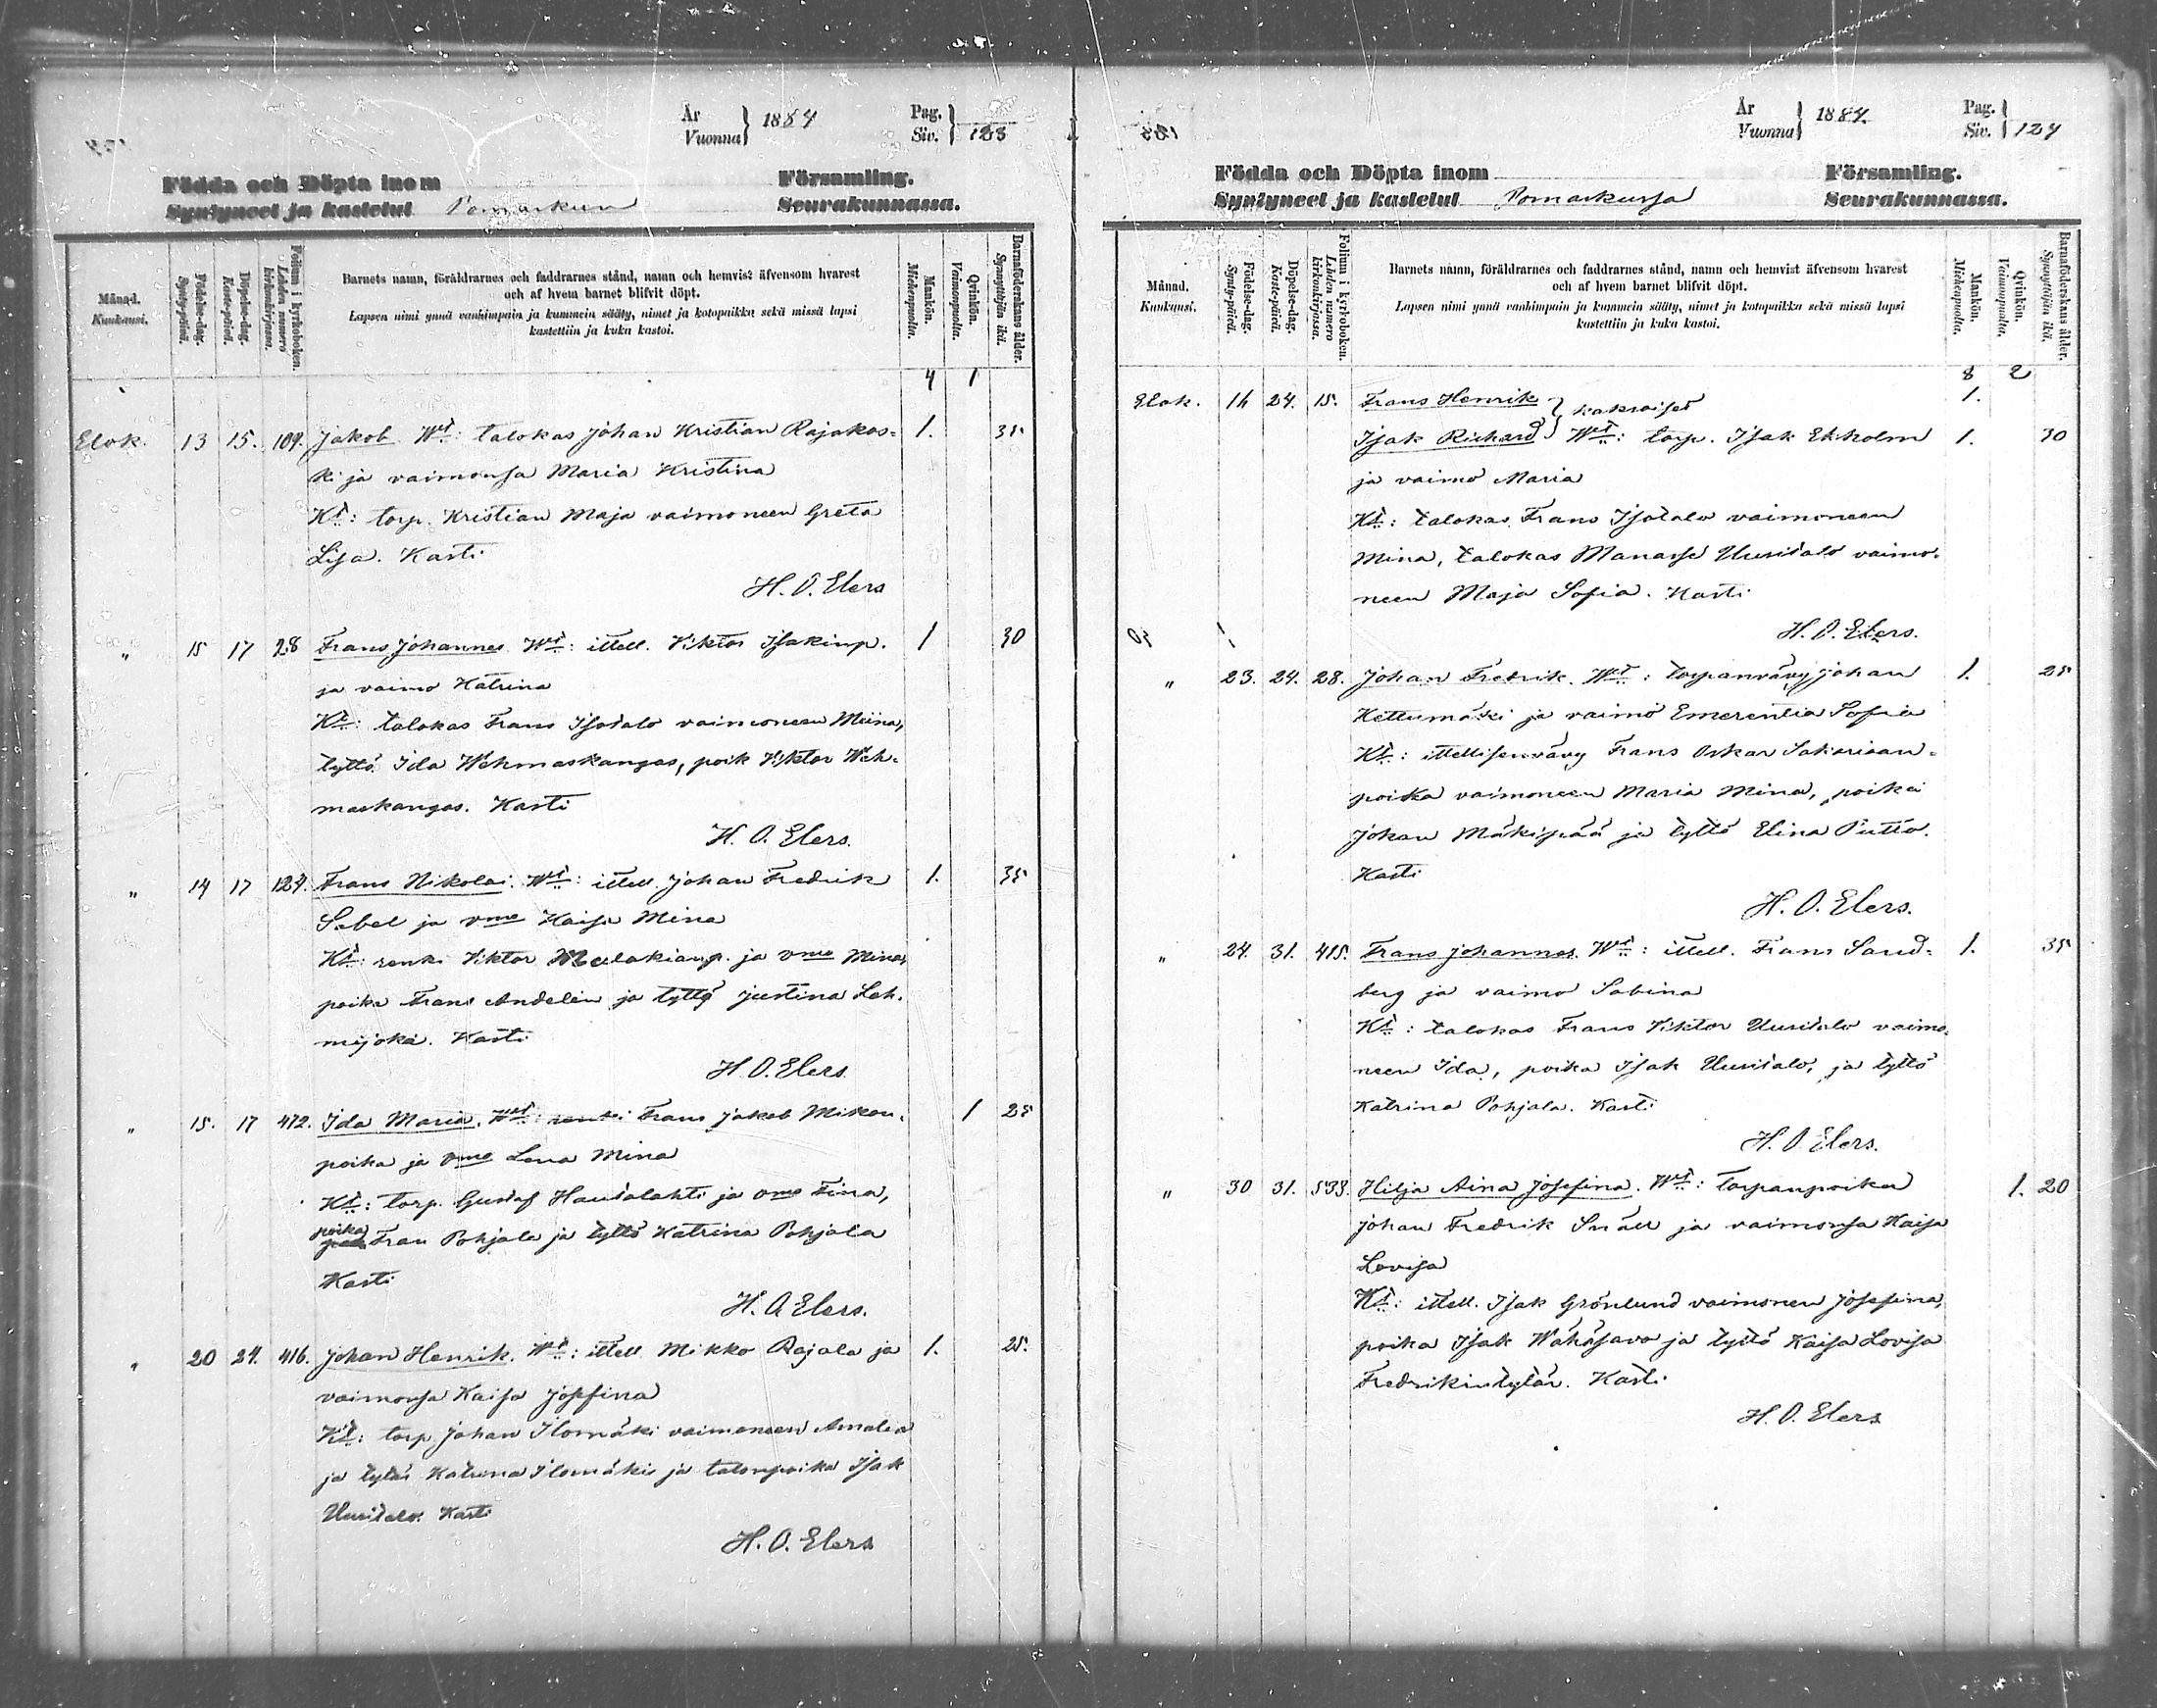 År
Vuonna } 1884
Pag.
Siv. } 123
Födda och Döpta inom Församling.
Syntyneet ja kastetut Pomarkun Seurakunnassa.
Månad.
Kuukausi.
Födelse-dag.
Synty-päivä.
Döpelse-dag.
Kaste-päivä.
Folium i kyrkoboken.
Lehden numero kirkonkirjassa.
Barnets namn, föräldrarnes och faddrarnes stånd, namn och hemvist äfvensom hvarest
och af hvem barnet blifvit döpt.
Lapsen nimi ynnä vanhimpain ja kummein sääty, nimet ja kotopaikka sekä missä lapsi
kastettiin ja kuka kastoi.
Mankön.
Miehenpuolta.
Qvinkön.
Vaimonpuolta.
Barnaföderskans ålder.
Synnyttäjän ikä.
4 1
Elok. 13 15. 109. Jakob Wt: talokas Johan Kristian Rajakos- 1. 35
ki ja vaimonsa Maria Kristina
Kt: torp. Kristian Maja vaimoneen Greta
Lisa. Kasti
H. O. Elers
" 15 17 28 Frans Johannes Wt: ittell. Viktor Isakinp. 1 30
ja vaimo Katrina
Kt: talokas Frans Isotalo vaimoneen Miina,
tyttö Ida Wehmaskangas, poik Viktor Weh-
maskangas. Kasti
H. O. Elers.
" 14 17 124. Frans Nikolai. Wt: ittell. Johan Fredrik 1. 35
Sabel ja vmo Kaisa Mina
Kt: renki Viktor Malakianp. ja vmo Mina,
poika Frans Andelin ja tyttö Justina Leh-
mijoki. Kasti
H. O. Elers
" 15. 17 472. Ida Maria. Wt: renki Frans Jakob Mikon- 1 25
poika ja vmo Lena Mina
Kt: torp. Gustaf Hautalahti ja vmo Fina,
poika
Frans Pohjala ja tyttö Katrina Pohjala
Kasti
H. O. Elers.
" 20 24. 416. Johan Henrik. Wt: ittell. Mikko Rajala ja 1. 25.
vaimonsa Kaisa Josefina
Kt: torp Johan Ilomäki vaimoneen Amalia
ja tytär Katrina Ilomäki ja talonpoika Isak
Uusitalo. Kasti
H. O. Elers
År
Vuonna } 1884.
Pag.
Siv. } 124
Födda och Döpta inom Församling.
Syntyneet ja kastetut Pomarkussa Seurakunnassa.
Månad.
Kuukausi.
Födelse-dag.
Synty-päivä.
Döpelse-dag.
Kaste-päivä.
Folium i kyrkoboken.
Lehden numero kirkonkirjassa.
Barnets namn, föräldrarnes och faddrarnes stånd, namn och hemvist äfvensom hvarest
och af hvem barnet blifvit döpt.
Lapsen nimi ynnä vanhimpain ja kummein sääty, nimet ja kotopaikka sekä missä lapsi
kastettiin ja kuka kastoi.
Mankön.
Miehenpuolta.
Qvinkön.
Vaimonpuolta.
Barnaföderskans ålder.
Synnyttäjän ikä.
8 2
Elok. 16 24. 15. Frans Henrik } kaksoiset 1.
Isak Richard } Wt: torp. Isak Ekholm 1. 30
ja vaimo Maria
Kt: talokas Frans Isotalo vaimoneen
Mina, talokas Manasse Uusitalo vaimo-
neen Maja Sofia. Kasti
H. O. Elers.
" 23. 24. 28. Johan Fredrik. Wt: torpanvävy Johan 1. 25
Kettumäki ja vaimo Emerentia Sofia
Kt: ittellisenvävy Frans Oskar Sakarian-
poika vaimoneen Maria Mina, poika
Johan Mäkipää ja tyttö Elina Putto.
Kasti
H. O. Elers.
" 24. 31. 415. Frans Johannes. Wt: ittell. Frans Sand- 1. 35
berg ja vaimo Sabina
Kt: talokas Frans Viktor Uusitalo vaimo-
neen Ida, poika Isak Uusitalo, ja tyttö
Katrina Pohjala. Kasti
H. O. Elers.
" 30 31. 533. Hilja Aina Josefina. Wt: torpanpoika 1. 20
Johan Fredrik Snäll ja vaimonsa Kaisa
Lovisa
Kt: ittell. Isak Grönlund vaimoneen Josefina,
poika Isak Wähäsavo ja tyttö Kaisa Lovisa
Fredrikintytär. Kasti
H. O. Elers